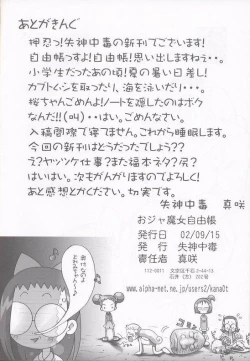 あとがきんぐ
押忍!失神中毒の新刊でございます!
自由帳っすよ!自由帳!思い出しますねぇ~。
小学生だったあの頃!夏の暑い日差し!
カブトムシを取ったり、海を泳いだり・・・。
桜ちゃんごめんよ!ノートを隠したのはボク
なんだ!!(叫)‥‥はい。ごめんなさい。
入稿間際で寝てません。これから睡眠します。
今回の新刊はどうだったでしょう??
え?ヤッツケ仕事?また福本ネタ?尻?
はいはい。次もがんがりますのでよろしく!
あと感想とかください。切実です。
失神中毒 真咲
おジャ魔女自由帳
発行日 02/09/15
発行 失神中毒
責任者 真咲
www.alpha-net.ne.jp/users2/kana0t